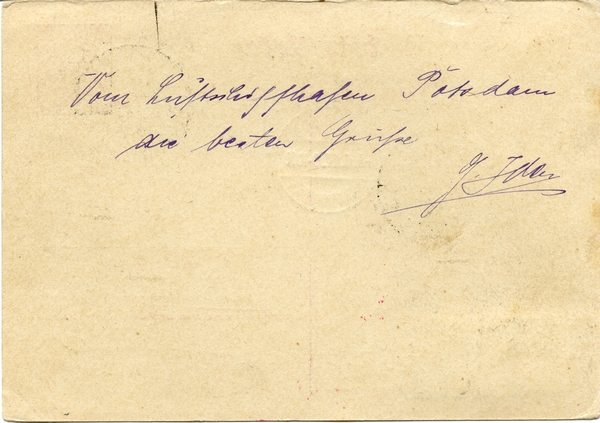 Vom Luftschiffhafen Potsdam
die besten Grüße